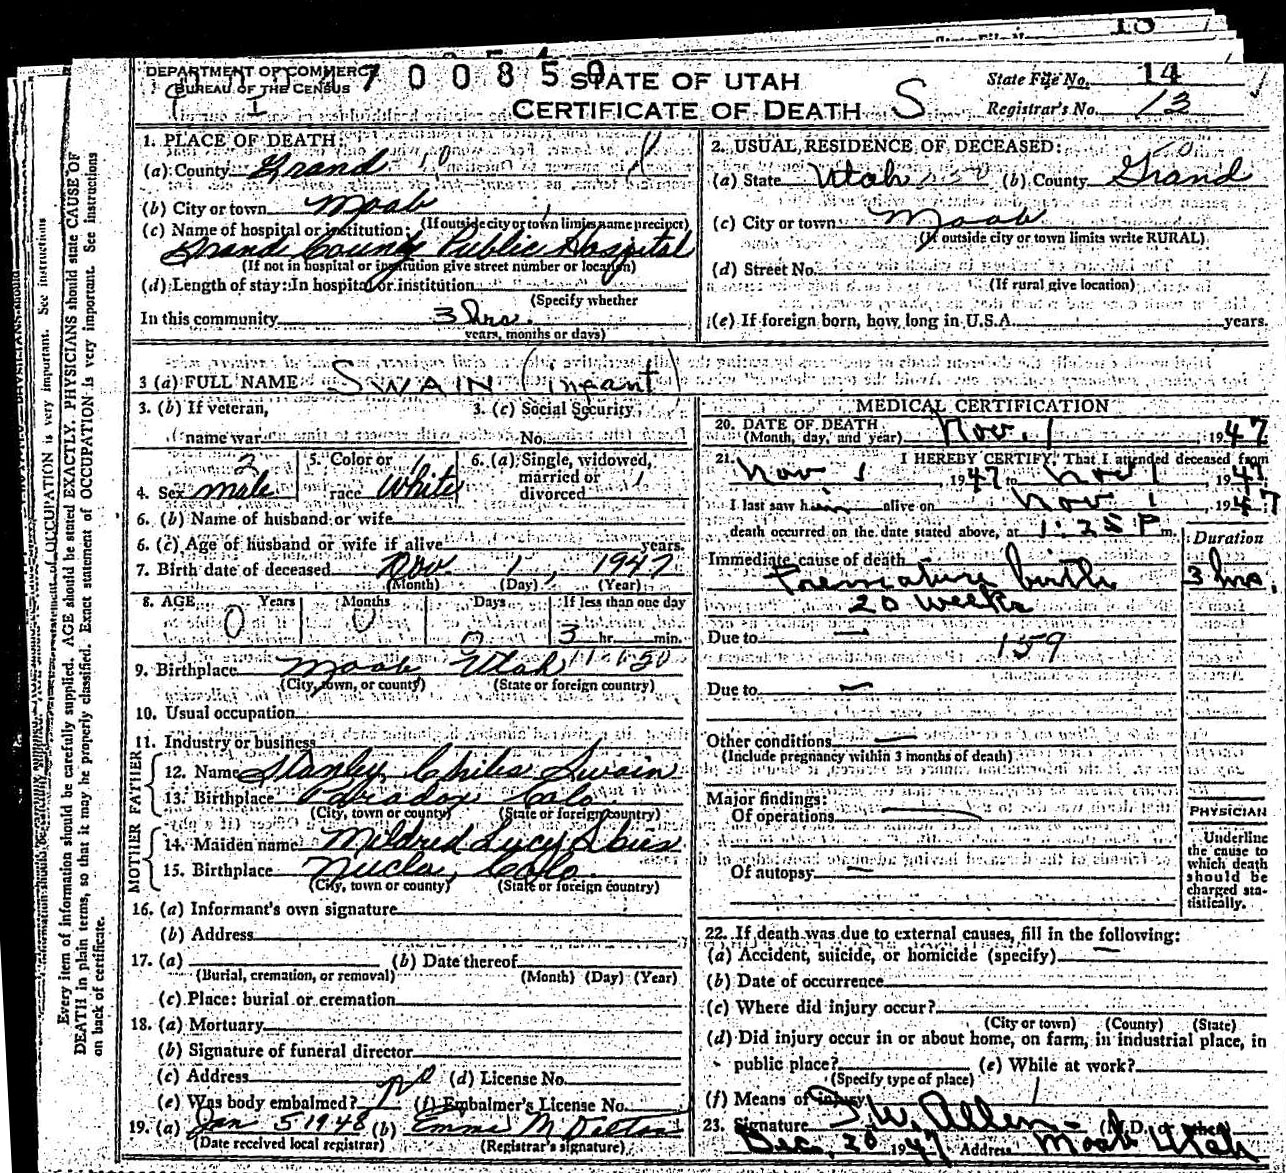 18
DEPARTMENT OF COMMERCE
BUREAU OF THE CENSUS
I
7 0 0 8 5 0
STATE OF UTAH
CERTIFICATE OF DEATH S
State File No. 14
Registrar's No. 13
1. PLACE OF DEATH:
(a) County Grand
(b) City or town Moab
(If outside city or town limits name precinct)
(c) Name of hospital or institution:
Grand County Public Hospital
(If not in hospital or institution give street number or location)
(d) Length of stay: In hospital or institution
(Specify whether
In this community 3 hrs.
years, months or days)
2. USUAL RESIDENCE OF DECEASED:
(a) State Utah (b) County Grand
(c) City or town Moab
(If outside city or town limits write RURAL)
(d) Street No.
(If rural give location)
(e) If foreign born, how long in U.S.A. years.
3 (a) FULL NAME SWAIN (infant)
3. (b) If veteran,
name war
3. (c) Social Security
No.
4. Sex male
2
5. Color or
race White
6. (a) Single, widowed,
married or
divorced
6. (b) Name of husband or wife
6. (c) Age of husband or wife if alive years.
7. Birth date of deceased Nov. 1, 1947
(Month) (Day) (Year)
8. AGE Years Months Days If less than one day
0 0 0 3 hr. min.
9. Birthplace Moab, Utah
(City, town, or county) (State or foreign country)
10. Usual occupation
11. Industry or business
FATHER
12. Name Stanley Swain
13. Birthplace Paradox Colo.
(City, town or county) (State or foreign country)
MOTHER
14. Maiden name Mildred Lucy
15. Birthplace Nucla, Colo.
(City, town or county) (State or foreign country)
16. (a) Informant's own signature
(b) Address
17. (a) (b) Date thereof
(Burial, cremation, or removal) (Month) (Day) (Year)
(c) Place: burial or cremation
18. (a) Mortuary
(b) Signature of funeral director
(c) Address (d) License No.
(e) Was body embalmed? no (f) Embalmer's License No.
19. (a) Jan 5 1948 (b) Emma M Dalton
(Date received local registrar) (Registrar's signature)
MEDICAL CERTIFICATION
20. DATE OF DEATH
(Month, day, and year) Nov. 1 1947
21. I HEREBY CERTIFY, That I attended deceased from
Nov 1, 1947 to Nov 1, 1947
I last saw him alive on Nov 1, 1947
death occurred on the date stated above, at 1:25 P m.
Duration
Immediate cause of death
Premature birth 3 hrs.
20 weeks
Due to — 159
Due to —
Other conditions —
(Include pregnancy within 3 months of death)
Major findings:
Of operations
Of autopsy —
PHYSICIAN
Underline
the cause to
which death
should be
charged sta-
tistically.
22. If death was due to external causes, fill in the following:
(a) Accident, suicide, or homicide (specify) —
(b) Date of occurrence
(c) Where did injury occur?
(City or town) (County) (State)
(d) Did injury occur in or about home, on farm, in industrial place, in
public place? (e) While at work?
(Specify type of place)
(f) Means of injury
23. Signature I. W. Allen (M.D., or other)
Dec. 20 1947 Address Moab Utah
Every item of information should be carefully supplied. AGE should be stated EXACTLY. PHYSICIANS should state CAUSE OF
DEATH in plain terms, so that it may be properly classified. Exact statement of OCCUPATION is very important. See instructions
on back of certificate.